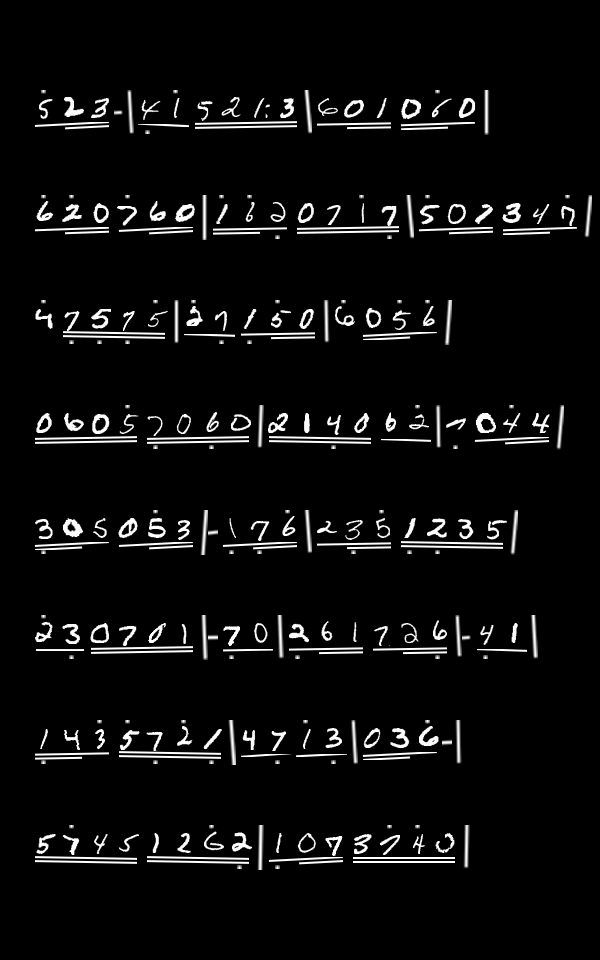 523-|41521:3|601060|
620760|1620717|507347|
47575|27150|6056|
06057060|214062|7044|
305053|-176|2351235|
230701|-70|261726|-41|
1435721|4713|036-|
57451262|1073740|